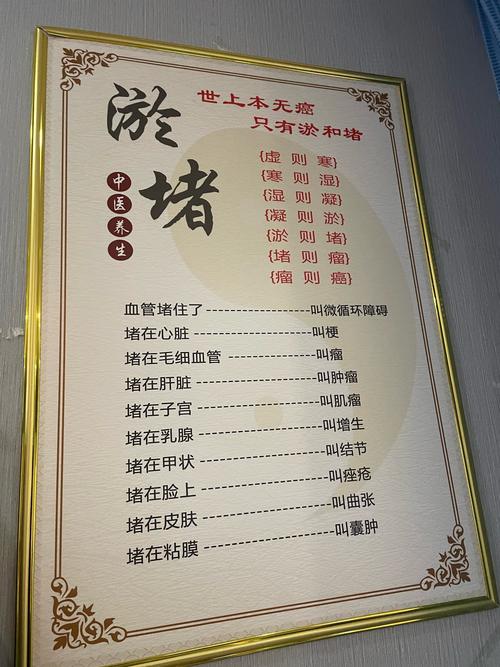 淤堵
中医养生
世上本无癌
只有淤和堵
{虚则寒}
{寒则湿}
{湿则凝}
{凝则淤}
{淤则堵}
{堵则瘤}
{瘤则癌}
血管堵住了---------------------叫微循环障碍
堵在心脏----------------------叫梗
堵在毛细血管 ------------------叫瘤
堵在肝脏----------------------叫肿瘤
堵在子宫----------------------叫肌瘤
堵在乳腺 ---------------------叫增生
堵在甲状----------------------叫结节
堵在脸上 ---------------------叫痤疮
堵在皮肤 ---------------------叫曲张
堵在粘膜 ---------------------叫囊肿